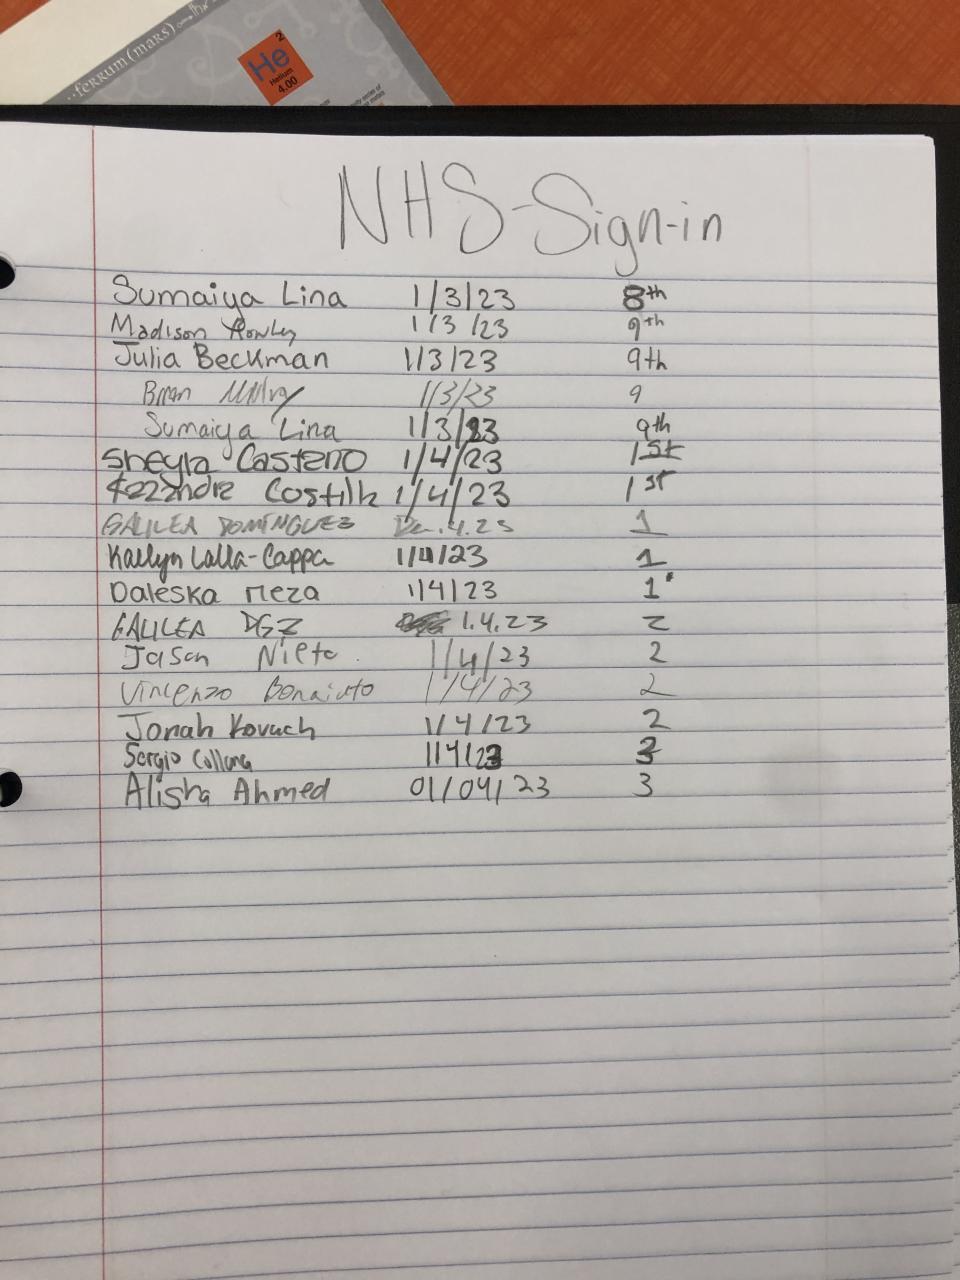 ..ferrum (mars)...
2
He
Helium
4.00
NHS-Sign-in
Sumaiya Lina 1/3/23 8th
Madison 1/3/23 9th
Julia Beckman 1/3/23 9th
Brian 1/3/23 9
Sumaiya Lina 1/3/23 9th
Sheyla Casteno 1/4/23 1st
1/4/23 1st
GALILEA DOMINGUEZ .4.23 1
Kaelyn Lalla-Cappa 1/4/23 1
Daleska Meza 1/4/23 1
GALILEA DGZ 1.4.23 2
Jason Nieto 1/4/23 2
Vincenzo Bonaiuto 1/4/23 2
Jonah Kovach 1/4/23 2
Sergio 1/4/23 3
Alisha Ahmed 01/04/23 3